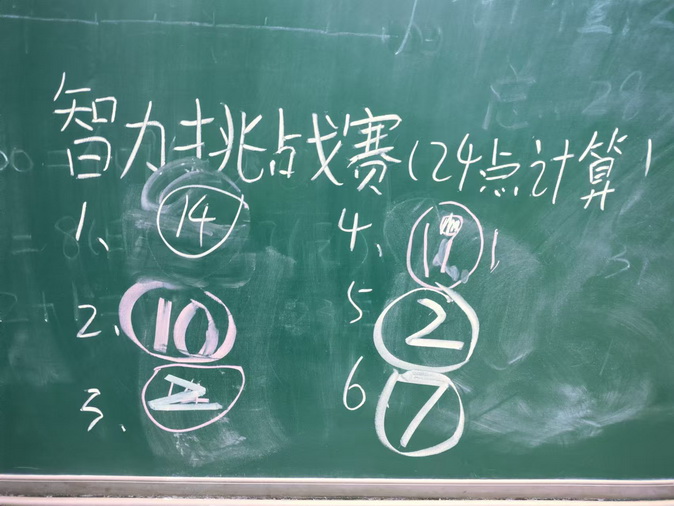 智力挑战赛(24点计算)
1、 14
2、 10
3、
4、
5 2
6 7